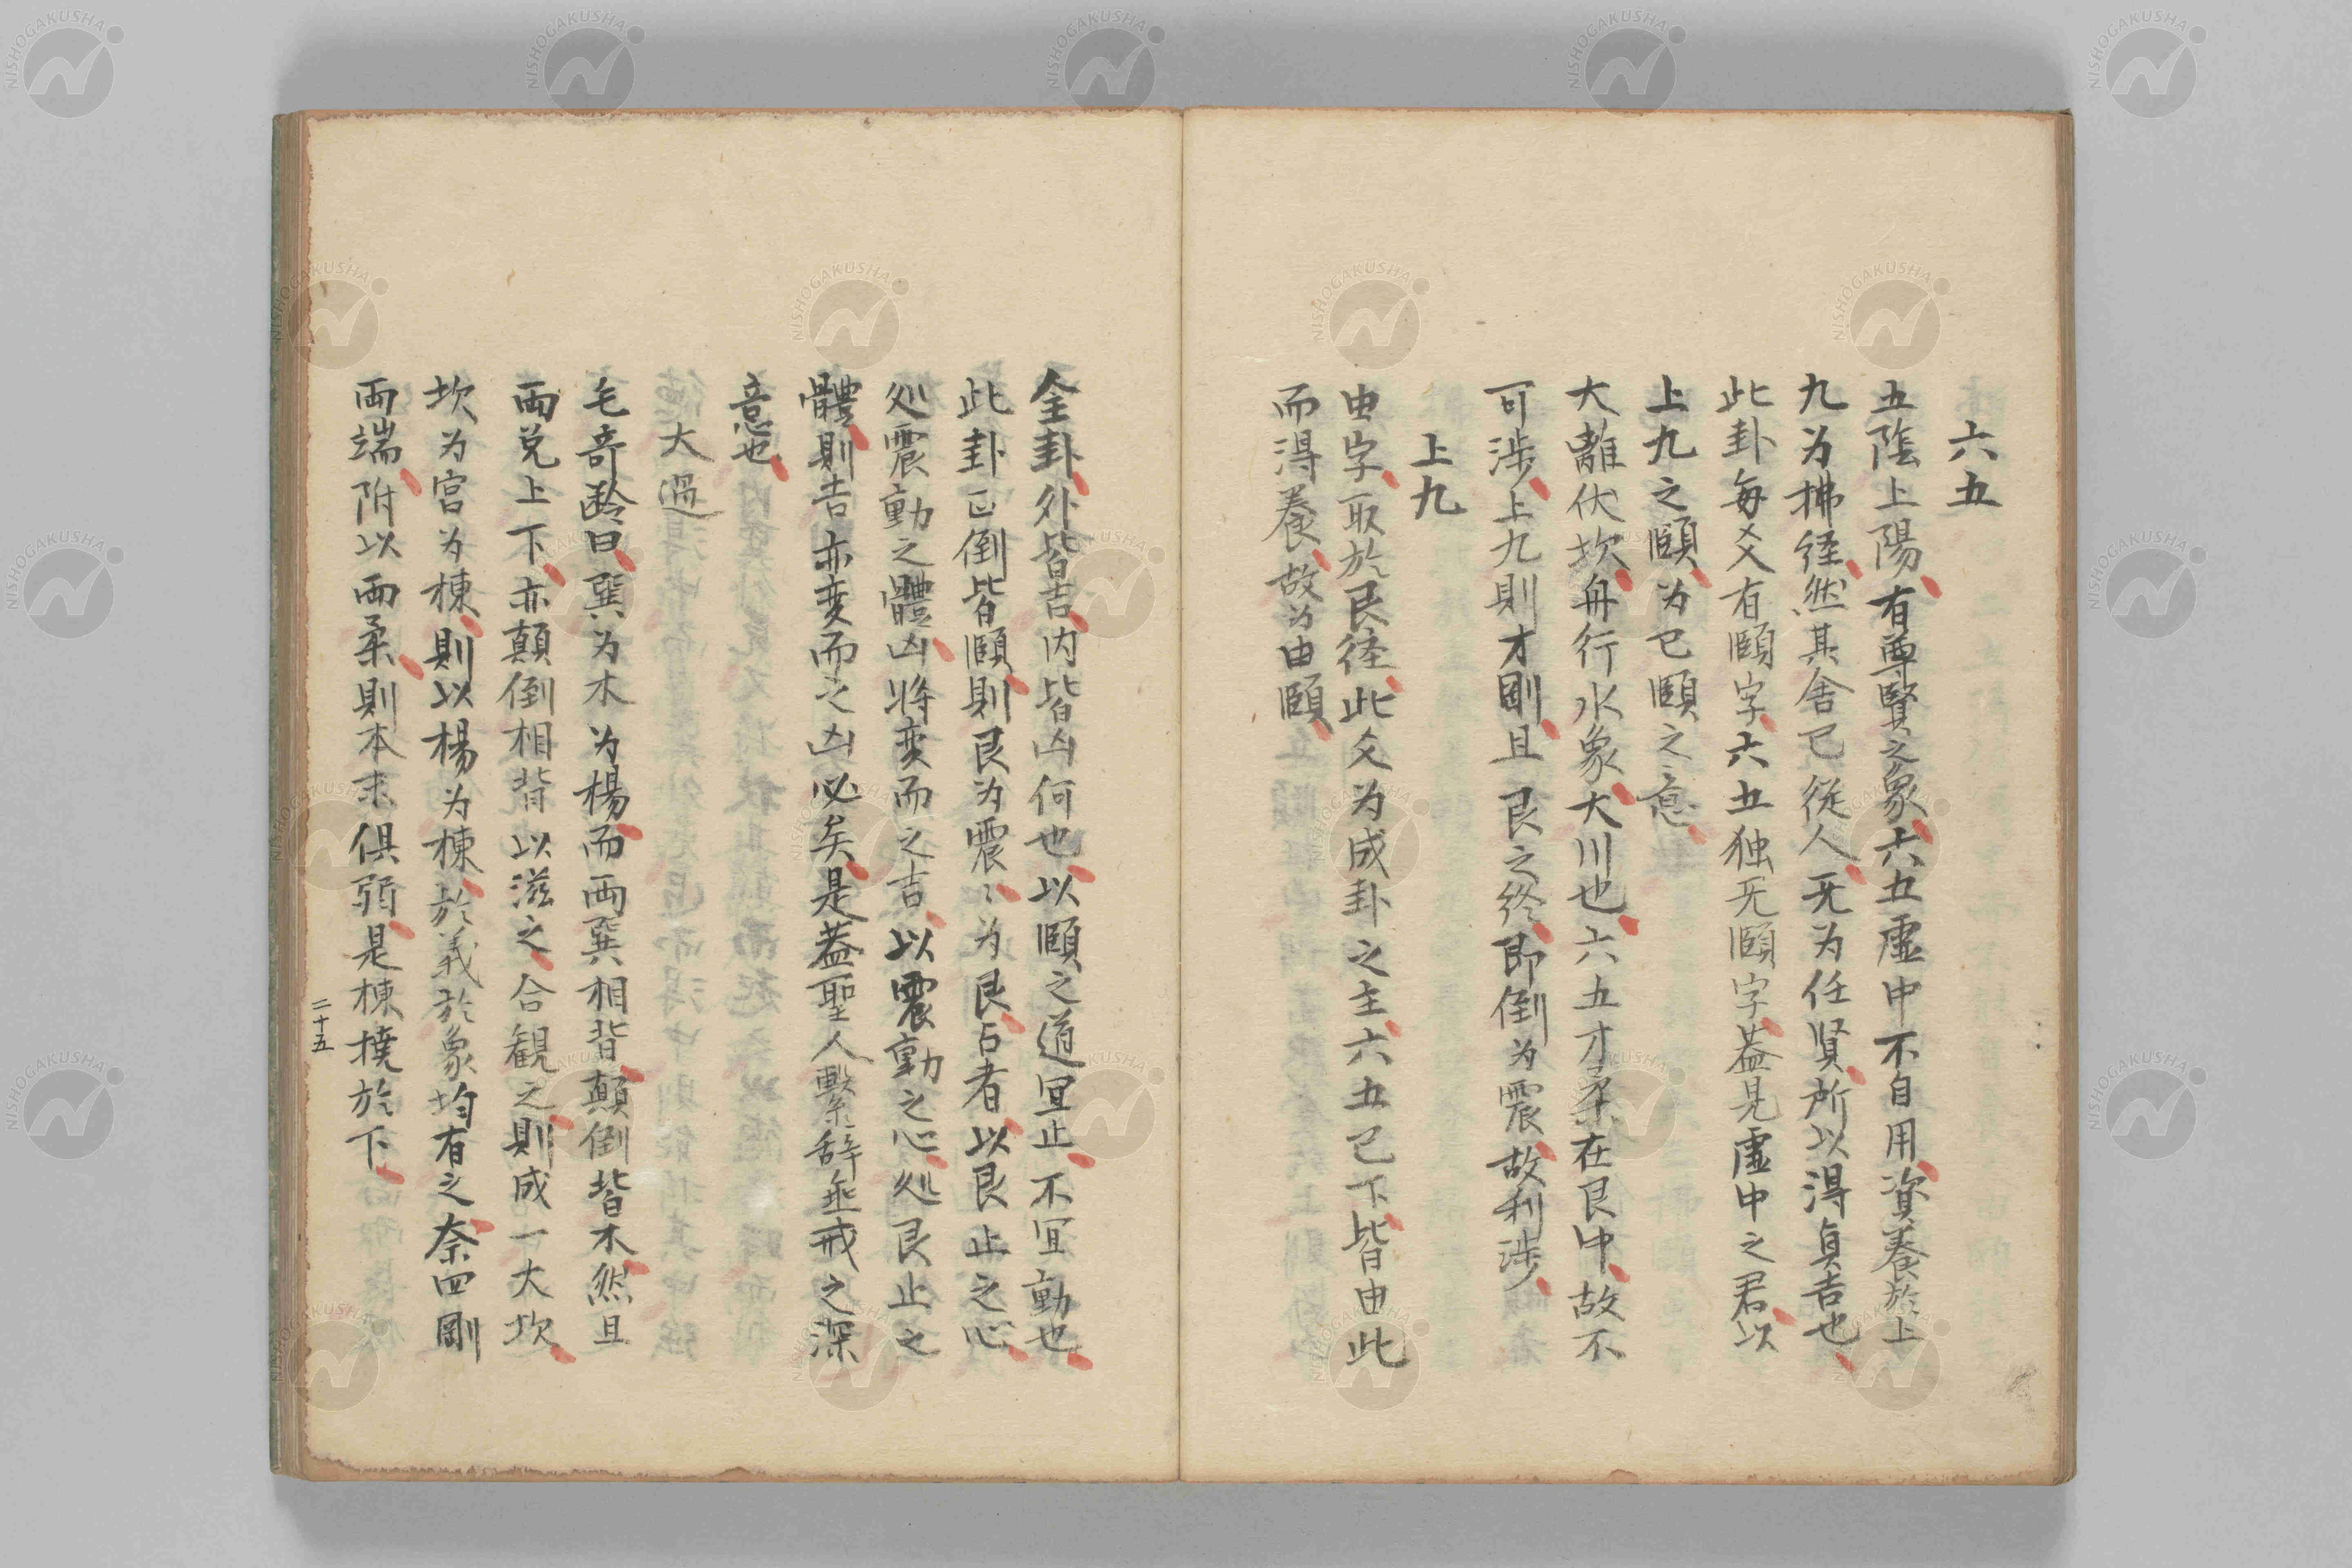 六五
五陰上陽有尊賢之象六五虛中不自用資養於上
九为拂径然其舍已従人无为任贤所以得貞吉也
此卦每爻有頤字六五独无頤字蓋見虛中之君以
上九之頤为已頤之意
大離伏坎舟行水象大川也六五才柔在艮中故不
可涉上九則才剛且艮之終即倒为震故利涉
上九
由字取於艮径此爻为成卦之主六五已下皆由此
而得養故为由頤
全卦外皆吉内皆凶何也以頤之道宜止不宜動也
此卦正倒皆頤則艮为震〻为艮占者以艮止之心
処震動之體凶将変而之吉以震動之心処艮止之
體則吉亦変而之凶必矣是蓋聖人繫辞垂戒之深
意也
大過
毛奇齢曰巽为木为楊而両巽相背顛倒皆木然且
両兌上下亦顛倒相背以滋之合観之則成一大坎
坎为宮为棟則以楊为棟於義於象均有之奈四剛
両端附以両柔則本末俱弱是棟橈於下
二十五
NISHOGAKUSHA